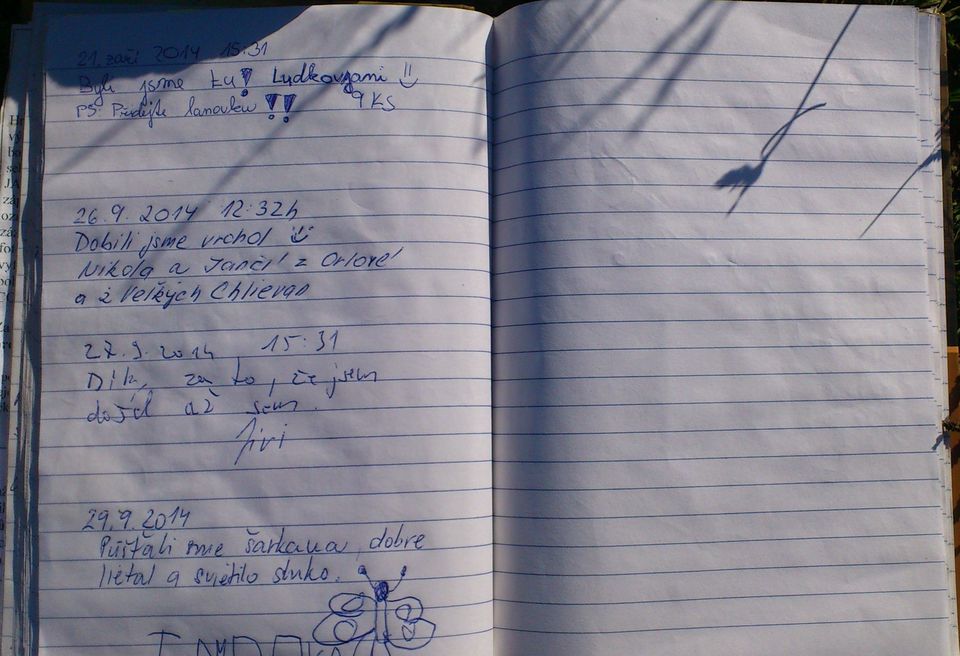 21. září 2014 15:31
Byli jsme tu! Ludkovjani
PS: Přidejte lanovku!! 9 KS
26.9. 2014 12:32h
Dobili jsme vrchol
Nikola a Janči z Orlové
a z Veľkých Chlievan
27.9. 2014 15:31
Dík, za to, že jsem
došel až sem.
Jiri
29.9.2014
Púšťali sme šarkana, dobre
lietal a svietilo slnko.